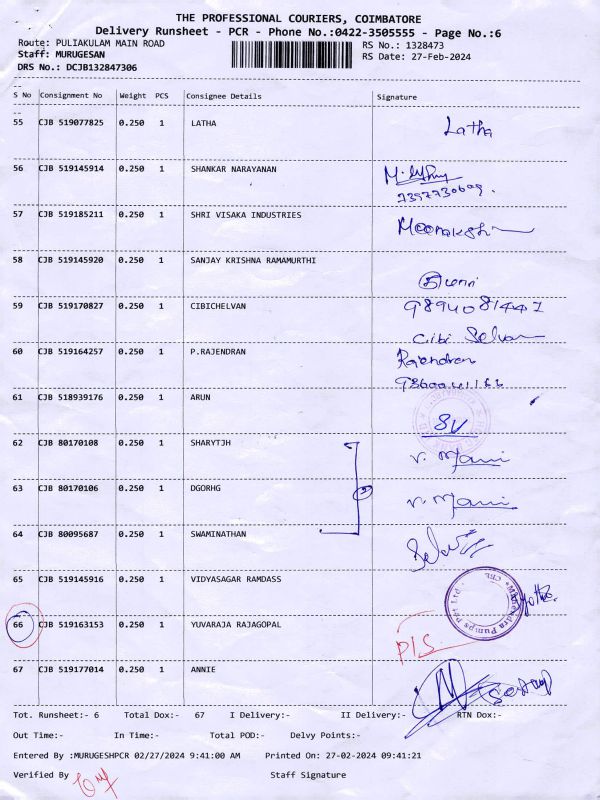 THE PROFESSIONAL COURIERS, COIMBATORE
Delivery Runsheet - PCR - Phone No.:0422-3505555 - Page No.:6
Route: PULIAKULAM MAIN ROAD RS No.: 1328473
Staff: MURUGESAN RS Date: 27-Feb-2024
DRS No.: DCJB132847306
--
S No Consignment No Weight PCS Consignee Details Signature
--
55 CJB 519077825 0.250 1 LATHA Latha
56 CJB 519145914 0.250 1 SHANKAR NARAYANAN
7397730609.
57 CJB 519185211 0.250 1 SHRI VISAKA INDUSTRIES Meenakshi
58 CJB 519145920 0.250 1 SANJAY KRISHNA RAMAMURTHI
59 CJB 519170827 0.250 1 CIBICHELVAN 9894081447
Cibi Selvan
60 CJB 519164257 0.250 1 P.RAJENDRAN Rajendran
61 CJB 518939176 0.250 1 ARUN SV
62 CJB 80170108 0.250 1 SHARYTJH V. Mani
63 CJB 80170106 0.250 1 DGORHG V. Mani
64 CJB 80095687 0.250 1 SWAMINATHAN
65 CJB 519145916 0.250 1 VIDYASAGAR RAMDASS
Mahendra Pumps Pvt Ltd. CBE
66 CJB 519163153 0.250 1 YUVARAJA RAJAGOPAL P/S
67 CJB 519177014 0.250 1 ANNIE
Tot. Runsheet:- 6 Total Dox:- 67 I Delivery:- II Delivery:- RTN Dox:-
Out Time:- In Time:- Total POD:- Delvy Points:-
Entered By :MURUGESHPCR 02/27/2024 9:41:00 AM Printed On: 27-02-2024 09:41:21
Verified By Staff Signature